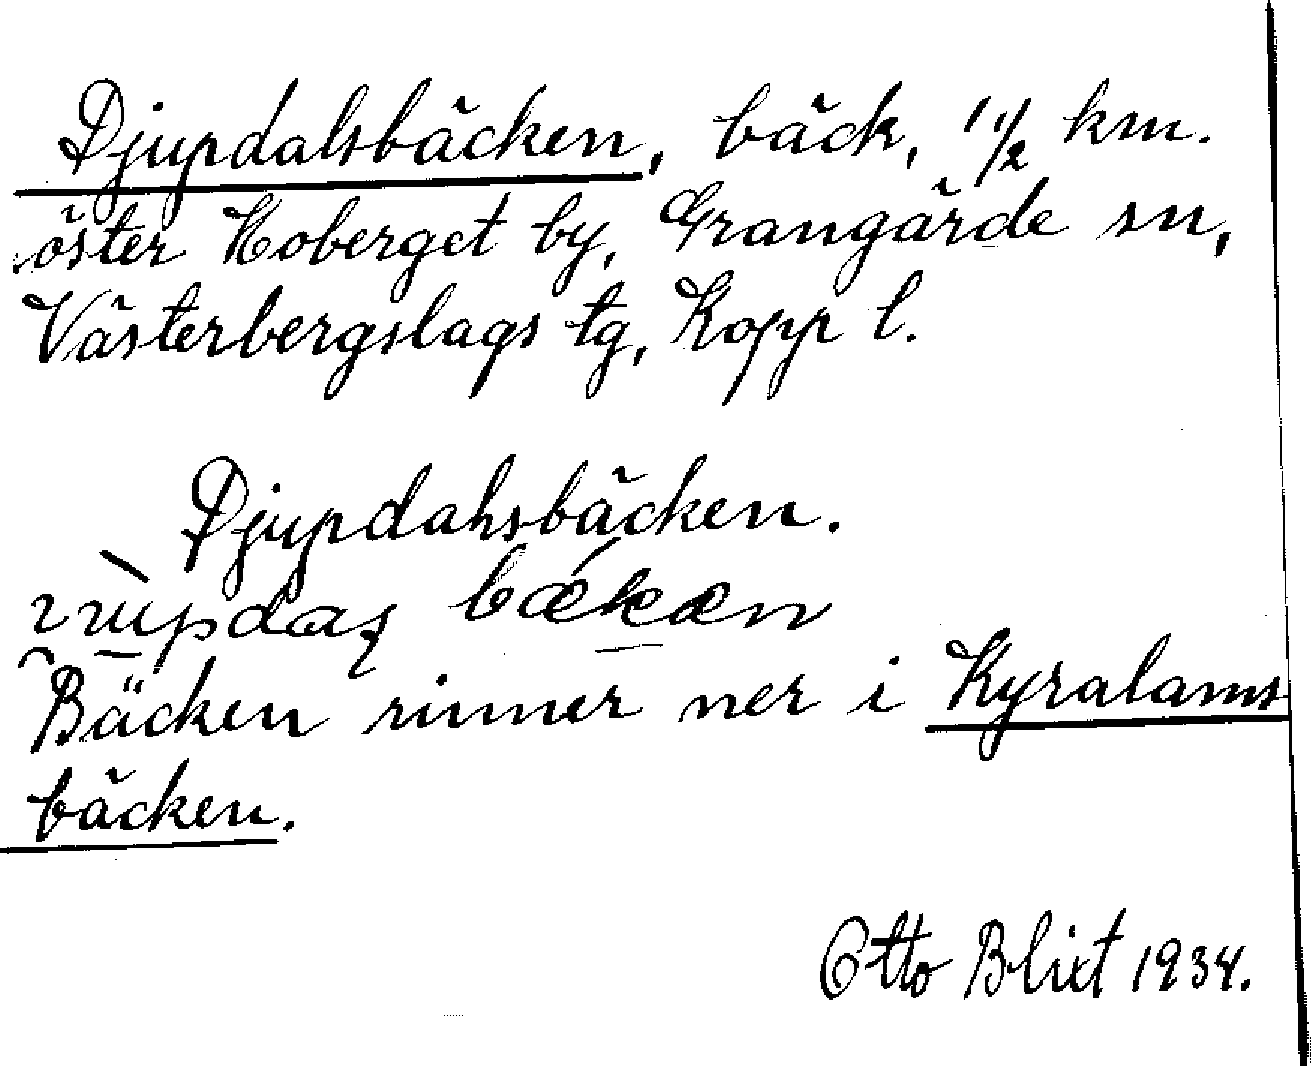 Djupdalsbäcken, bäck, 1 1/2 km.
öster Hoberget by, Grangärde sn,
Västerbergslags tg, Kopp l.
Djupdahsbäcken.
bækæn
Bäcken rinner ner i Kyralams
bäcken.
Otto Blixt 1934.